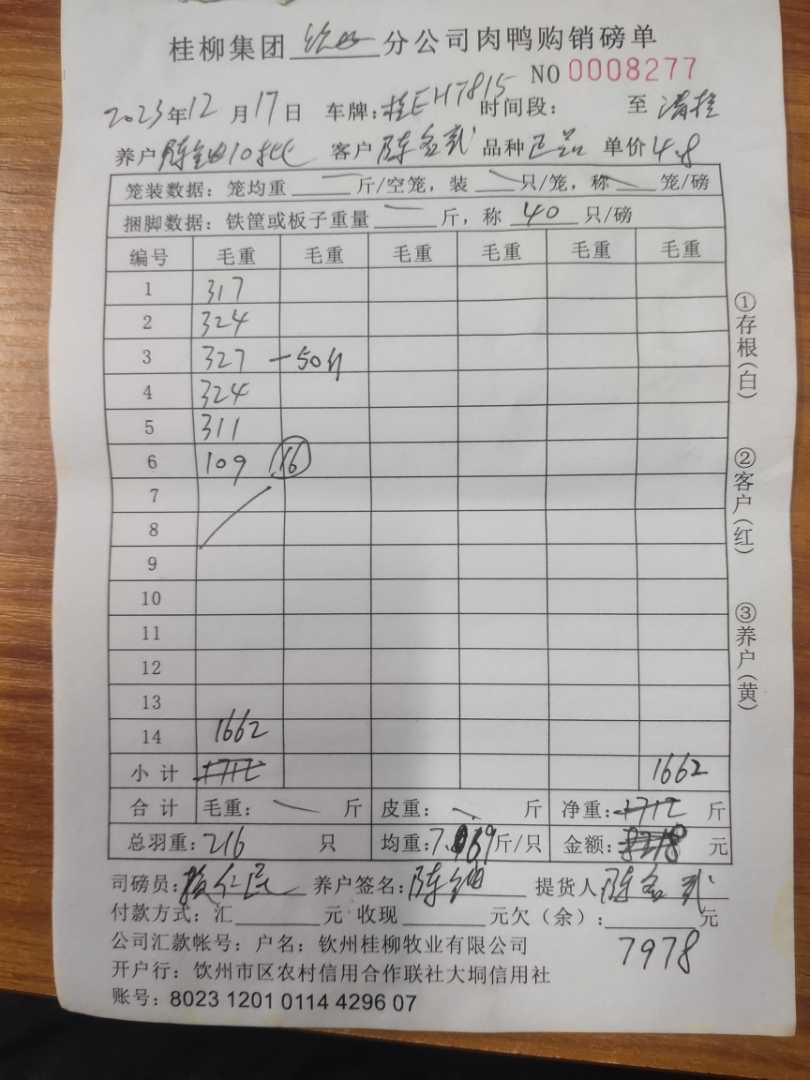 桂柳集团 分公司肉鸭购销磅单
NO 0008277
2023年12月17日 车牌:桂EH7815 时间段: 至 清桂
养户 陈 10批 客户 陈 武 品种 正品 单价 4.8
笼装数据: 笼均重 斤/空笼, 装 只/笼, 称 笼/磅
捆脚数据: 铁筐或板子重量 斤, 称 40 只/磅
编号 毛重 毛重 毛重 毛重 毛重 毛重
1 317
2 324
3 327 -50斤
4 324
5 311
6 109 16
7
8
9
10
11
12
13
14 1662
小计 1712 1662
合计 毛重: 斤 皮重: 斤 净重: 1712 斤
总羽重: 216 只 均重: 7. 69 斤/只 金额: 元
司磅员: 民 养户签名: 陈 提货人 陈 武
付款方式: 汇 元 收现 元欠(余): 元
7978
公司汇款帐号: 户名: 钦州桂柳牧业有限公司
开户行: 钦州市区农村信用合作联社大垌信用社
账号: 8023 1201 0114 4296 07
①存根(白)
②客户(红)
③养户(黄)